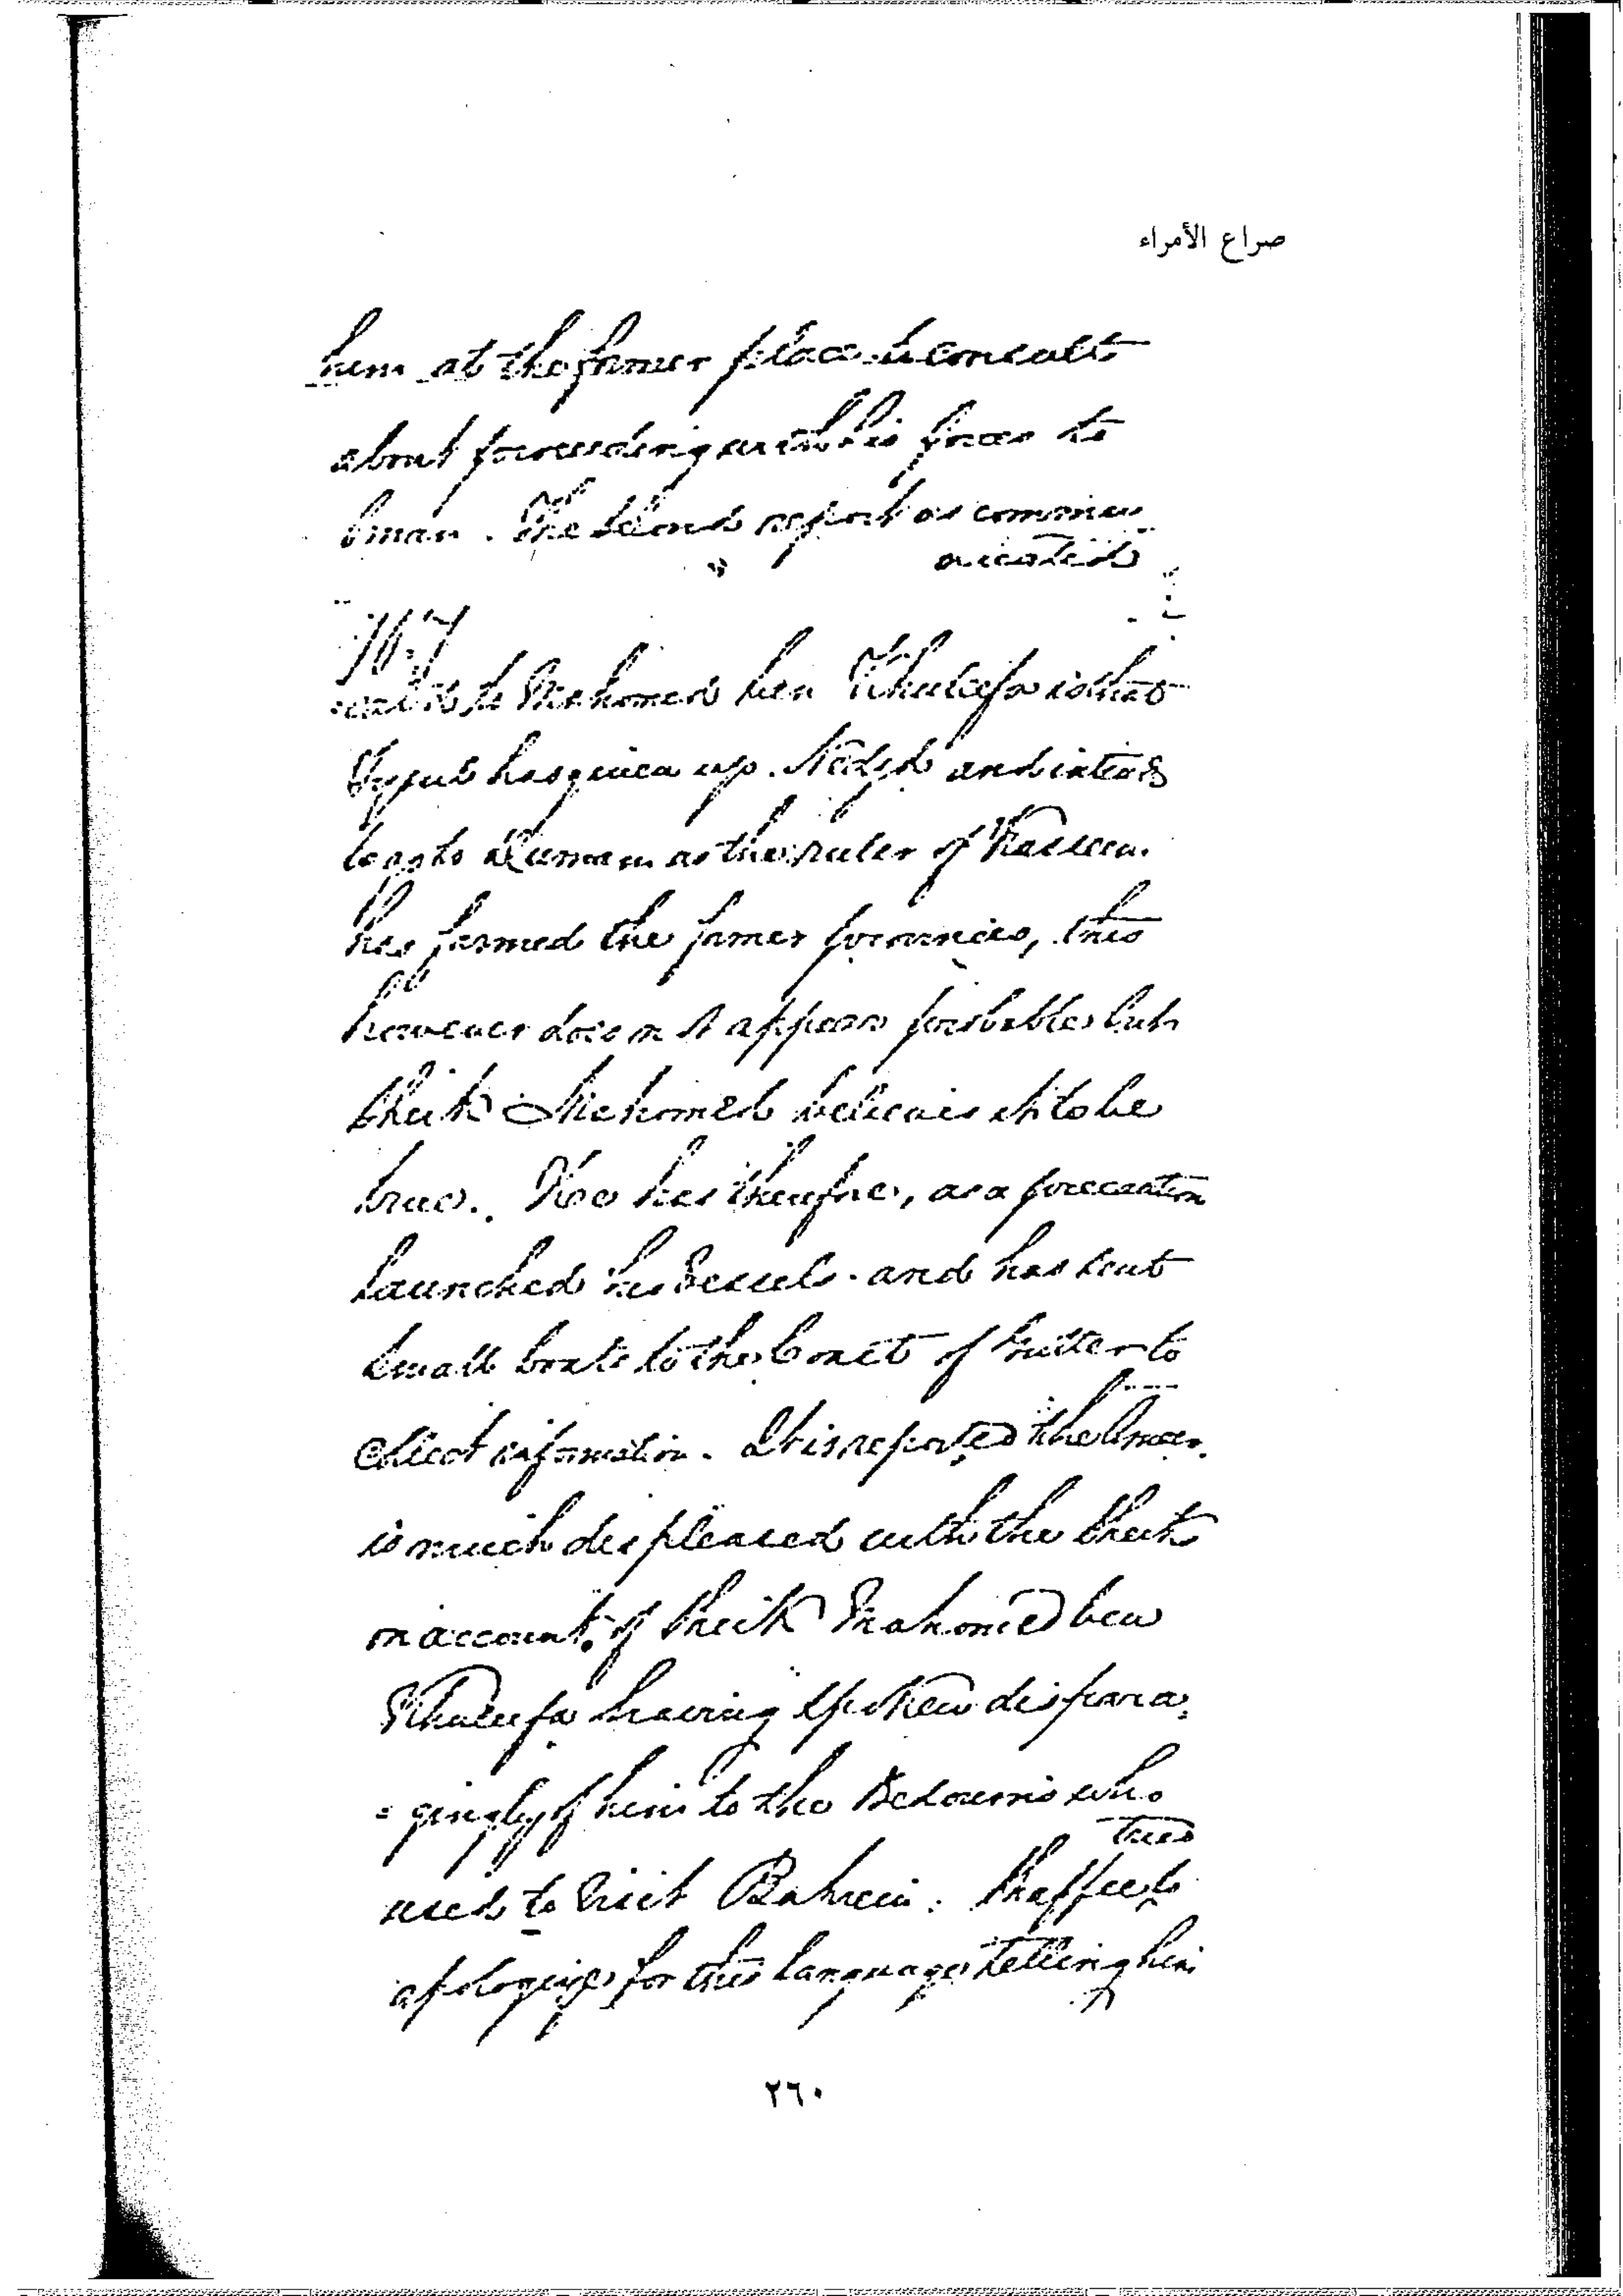 صراع الأمراء
him at the former place to consult
about proceeding with his force to
Oman. The second report as commu
nicated
767
to Mahomed ben Khuleefa is that
Fysul has given up Nedjd and intends
to go to as the ruler of
has farmed the former provinces, this
however does not appear probable but
Sheik Mahomed believes it to be
true. He has therefore, as a precaution
launched his Vessels and has sent
small boats to the Coast of Gutter to
collect information. It is reported the Ameer
is much displeased with the Sheik
on account of Sheik Mahomed ben
Khuleefa having spoken dispara
= gingly of him to the Bedouins who
used to visit Bahrein.
apologize for this language telling him
٢٦٠